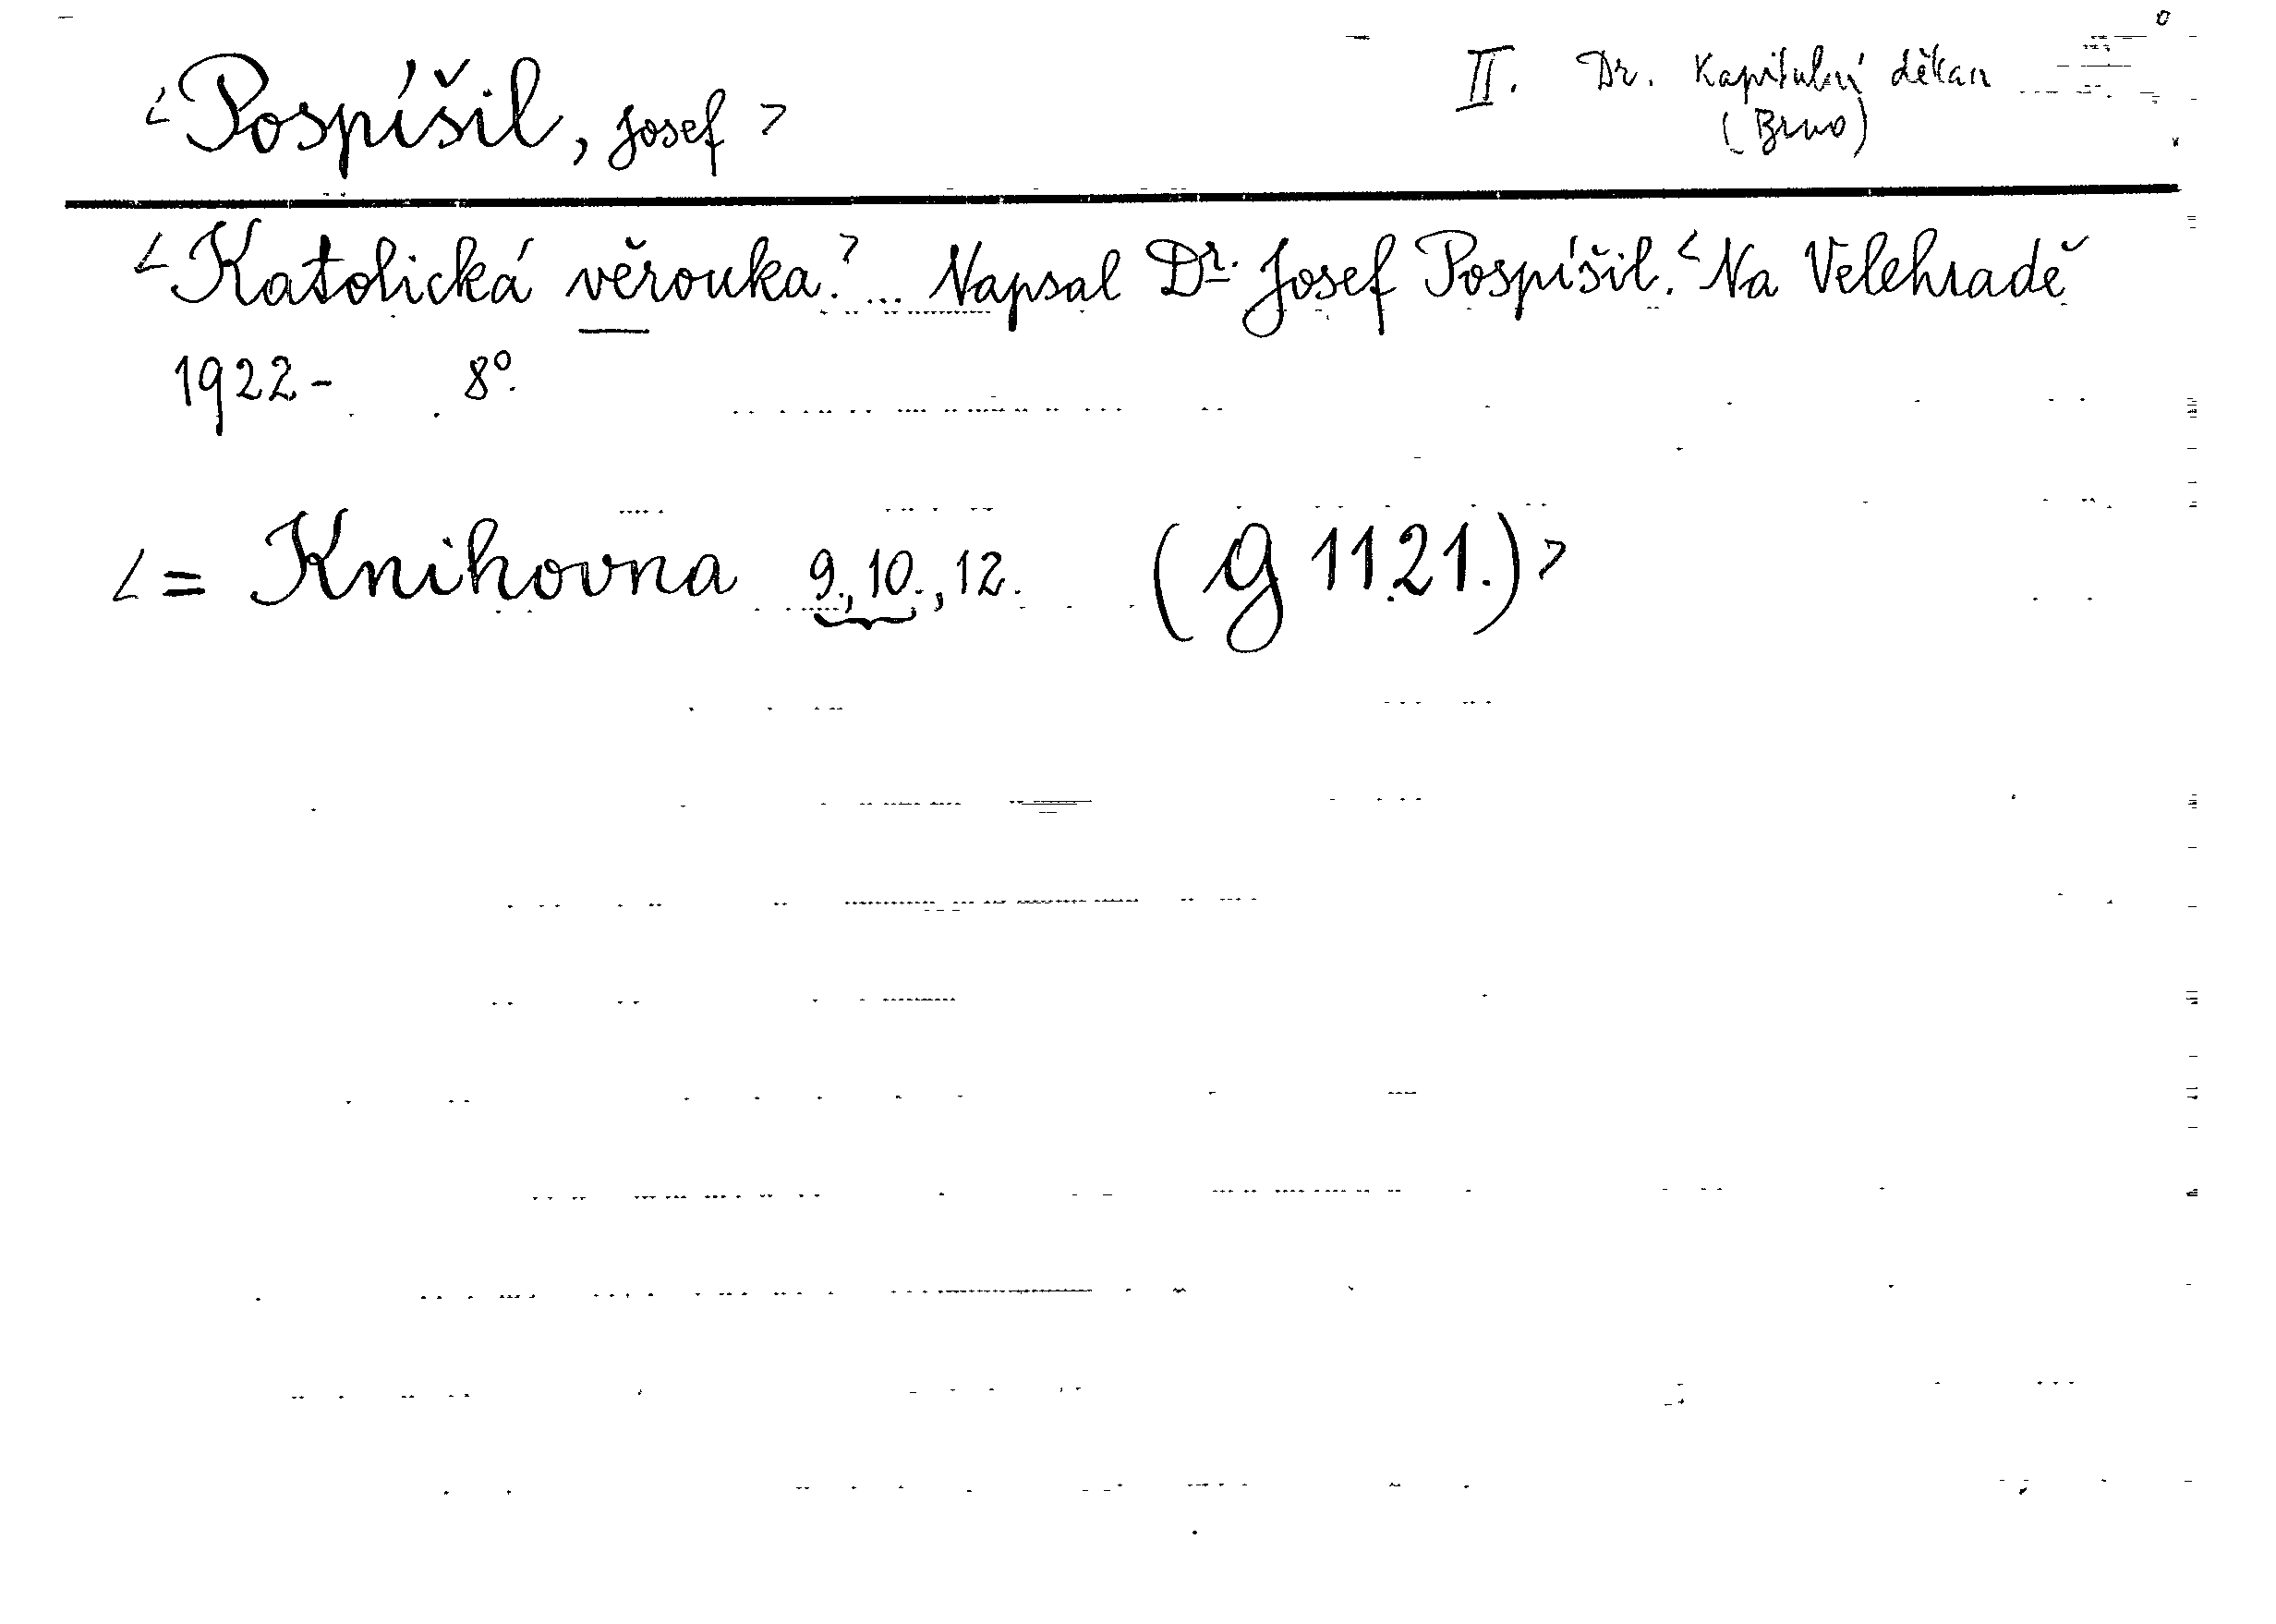 <Pospíšil, Josef> II. Dr. Kapitulní děkan
(Brno)
<Katolická věrouka.> ... Napsal Dr. Josef Pospíšil. <Na Velehradě
1922- 8°.
<= Knihovna 9., 10., 12. (G 1121.)>